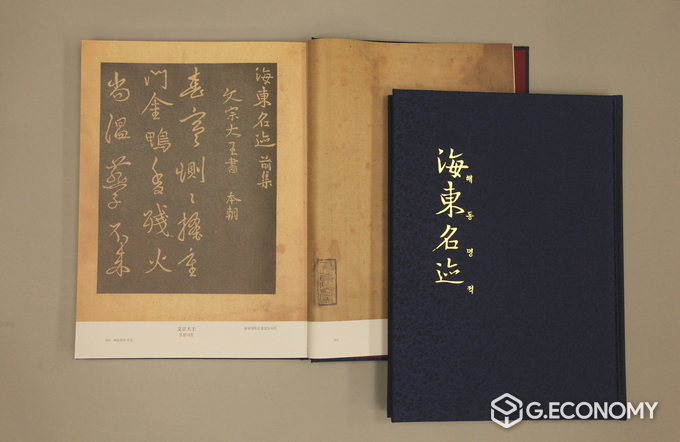 海東名迹 前集
文宗大王書 本朝
春寒惻〻掩重
門金鴨香殘火
尚溫燕子不來
文宗大王
海東名迹
해동명적
G.ECONOMY